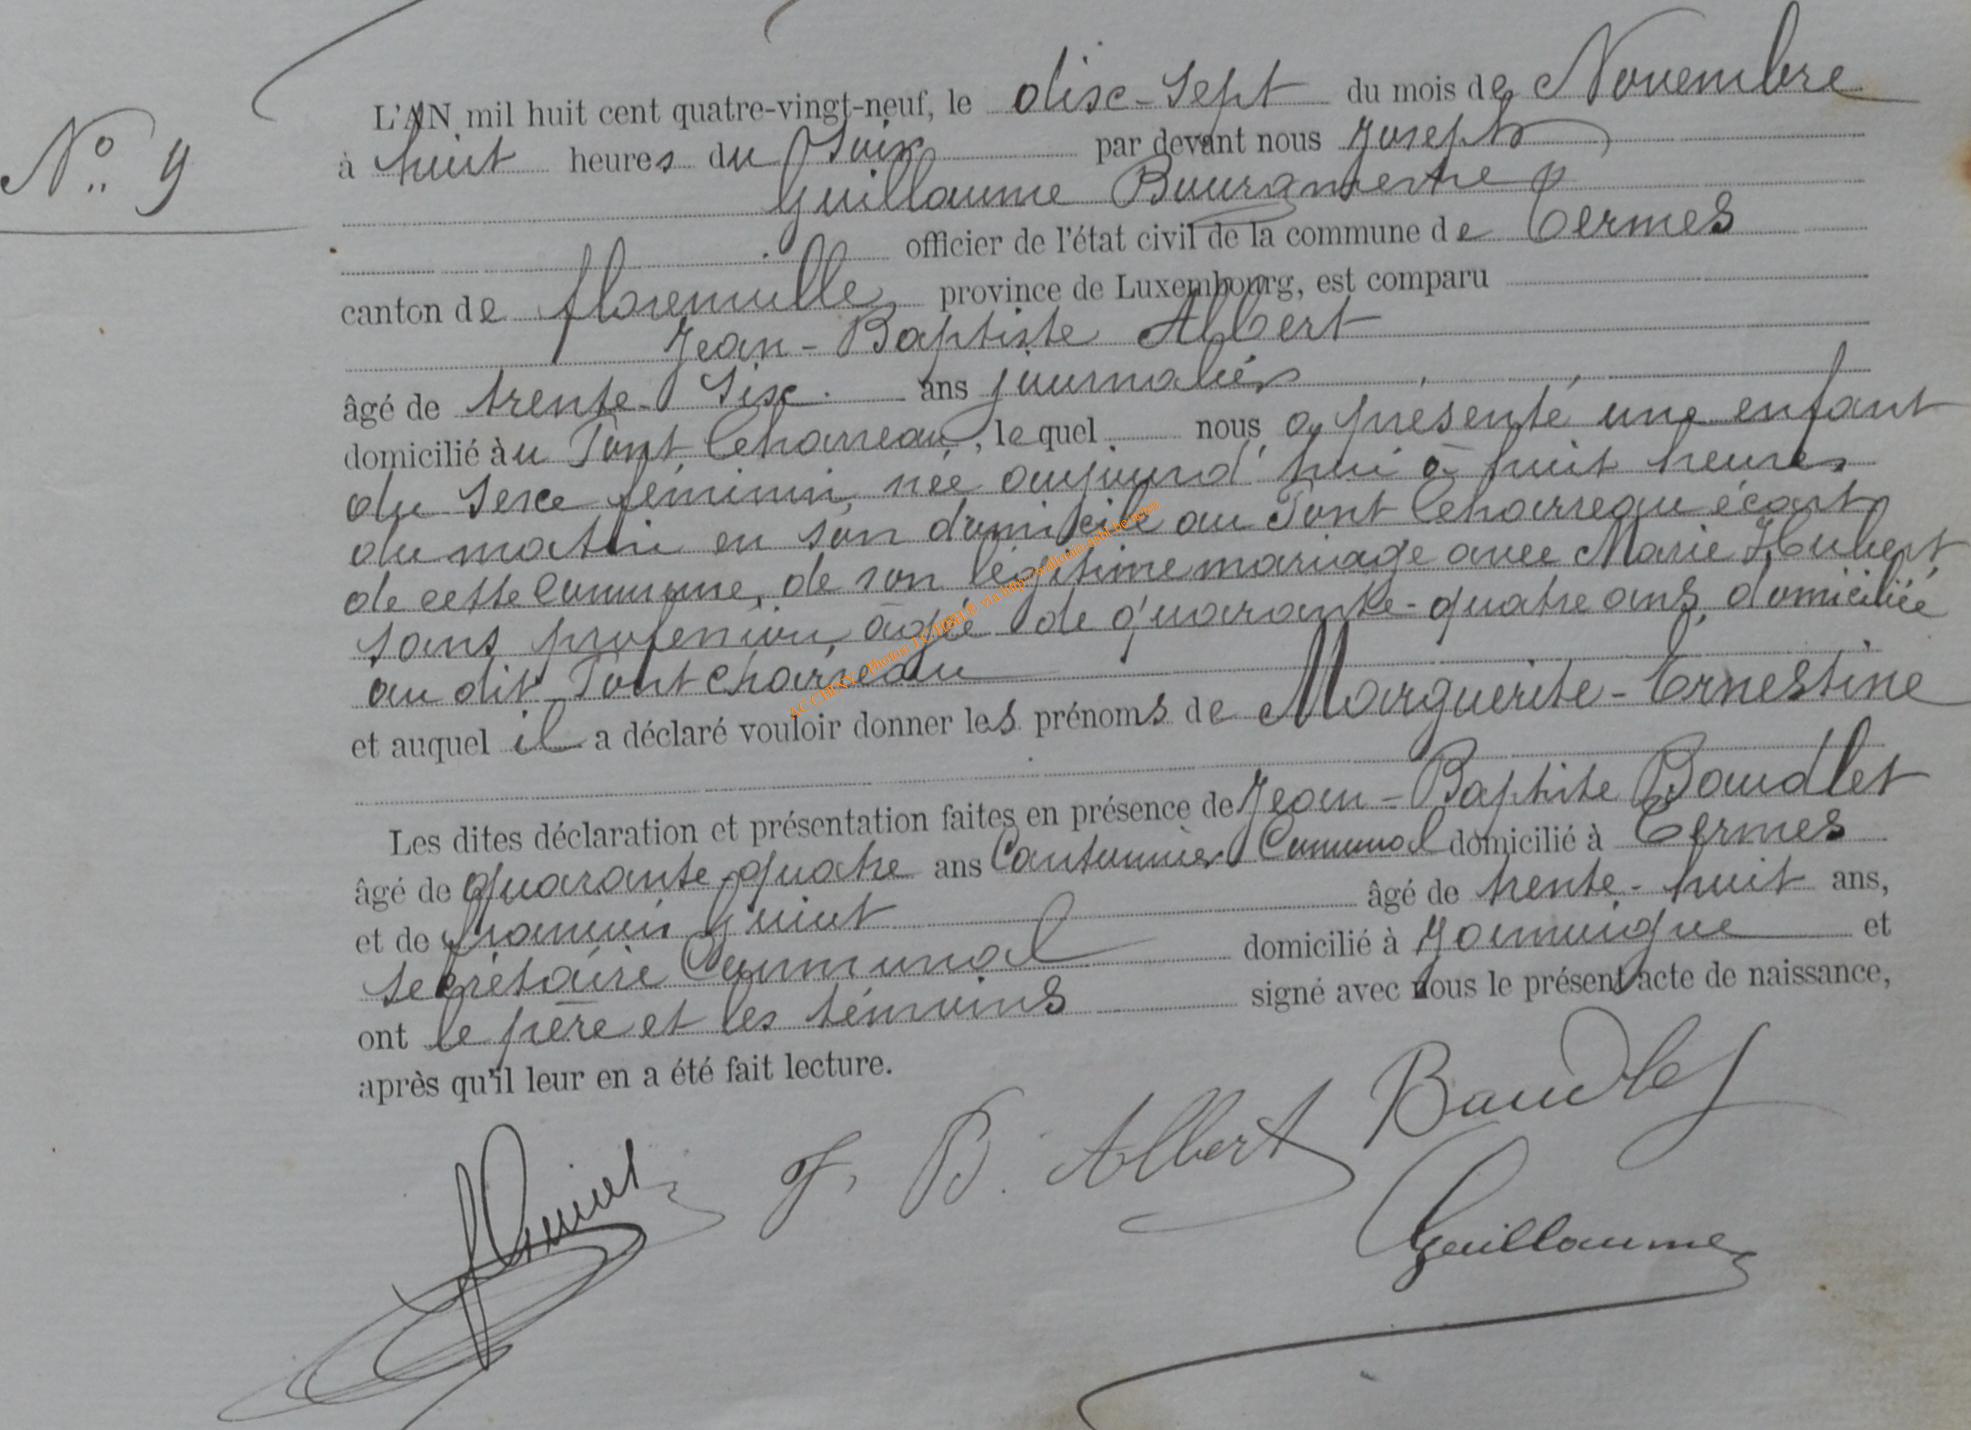 N° 9
L'AN mil huit cent quatre-vingt-neuf, le disc-Sept du mois de Novembre
à huit heures du Soir par devant nous Joseph
Guillaume Bourgmestre
officier de l'état civil de la commune de Termes
canton de florenville province de Luxembourg, est comparu
Jean-Baptiste Albert
âgé de trente-Sisc ans journalier
domicilié àu Pont Charreau, lequel nous a présenté une enfant
du Sexe féminin née aujourd'hui à huit heures
du matin en son domicile au Pont Charreau écart
de cette Commune, de son légitime mariage avec Marie Hubert
sans profession âgée de quarante-quatre ans, domiciliée
au dit Pont charreau
et auquel il a déclaré vouloir donner les prénoms de Marguerite-Ernestine
Les dites déclaration et présentation faites en présence de Jean-Baptiste Baudlet
âgé de quarante-quatre ans Cantonnier Communal domicilié à Termes
et de françois Guiot âgé de trente-huit ans,
secrétaire Communal domicilié à Jamoigne et
ont le père et les témoins signé avec nous le présent acte de naissance,
après qu'il leur en a été fait lecture.
Baudlet
J. B. Albert
Guiot
Guillaume